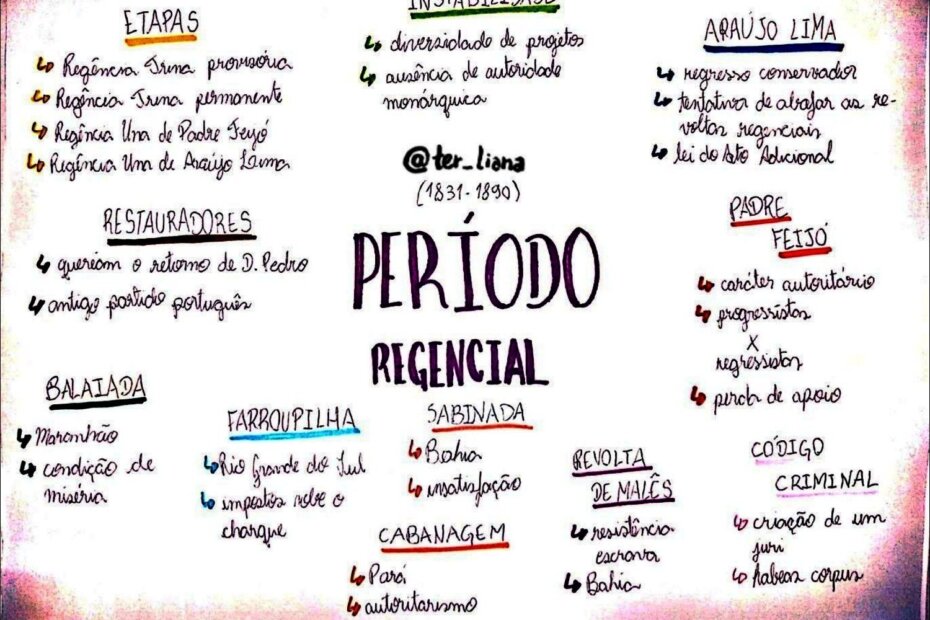 ETAPAS
Regência Trina provisória
Regência Trina permanente
Regência Una de Padre Feijó
Regência Una de Araújo Lima
INSTABILIDADE
diversidade de projetos
ausência de autoridade
monárquica
ARAÚJO LIMA
regresso conservador
tentativa de abafar as re-
voltas regenciais
lei do Ato Adicional
@ter_liana
(1831-1890)
PERÍODO
REGENCIAL
RESTAURADORES
queriam o retorno de D. Pedro
antigo partido português
PADRE
FEIJÓ
caráter autoritário
progressistas
X
regressistas
perda de apoio
BALAIADA
Maranhão
condição de
miséria
FARROUPILHA
Rio Grande do Sul
impostos sobre o
charque
SABINADA
Bahia
insatisfação
CABANAGEM
Pará
autoritarismo
REVOLTA
DE MALÊS
resistência
escrava
Bahia
CÓDIGO
CRIMINAL
criação de um
juri
habeas corpus